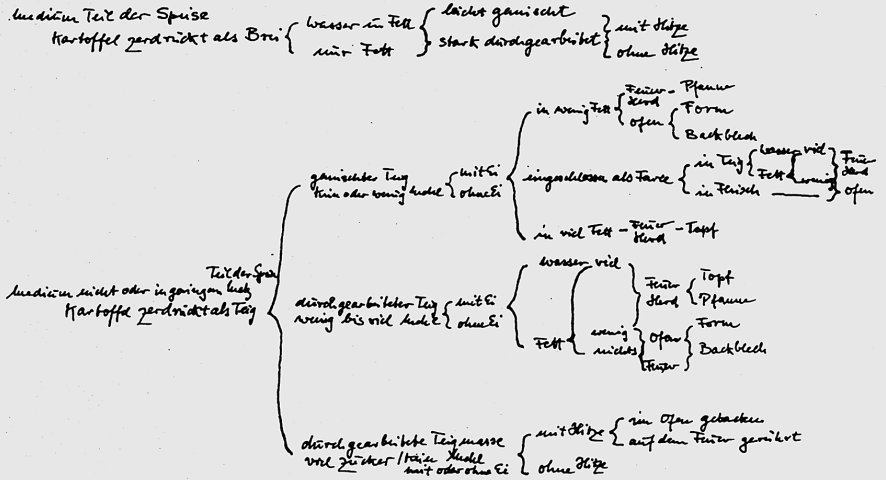 Medium Teil der Speise
Kartoffel zerdrückt als Brei
wasser in Fett
nur Fett
leicht gemischt
stark durchgearbeitet
mit Hitze
ohne Hitze
Medium nicht oder in geringem
Teil der Speise
Kartoffel zerdrückt als Teig
gemischter Teig
kein oder wenig Mehl
mit Ei
ohne Ei
in wenig Fett
Feuer - Pfanne
Herd
Ofen
Form
Backblech
eingeschlossen als Farce
in Teig
wasser viel
Fett
wenig
in Fleisch
Feuer
Herd
Ofen
in viel Fett - Feuer - Topf
Herd
durchgearbeiteter Teig
wenig bis viel Mehl
mit Ei
ohne Ei
wasser viel
Fett
wenig
nichts
Feuer
Herd
Topf
Pfanne
Ofen
Feuer
Form
Backblech
durchgearbeitete Teigmasse
viel Zucker / kein Mehl
mit oder ohne Ei
mit Hitze
ohne Hitze
im Ofen gebacken
auf dem Feuer gerührt